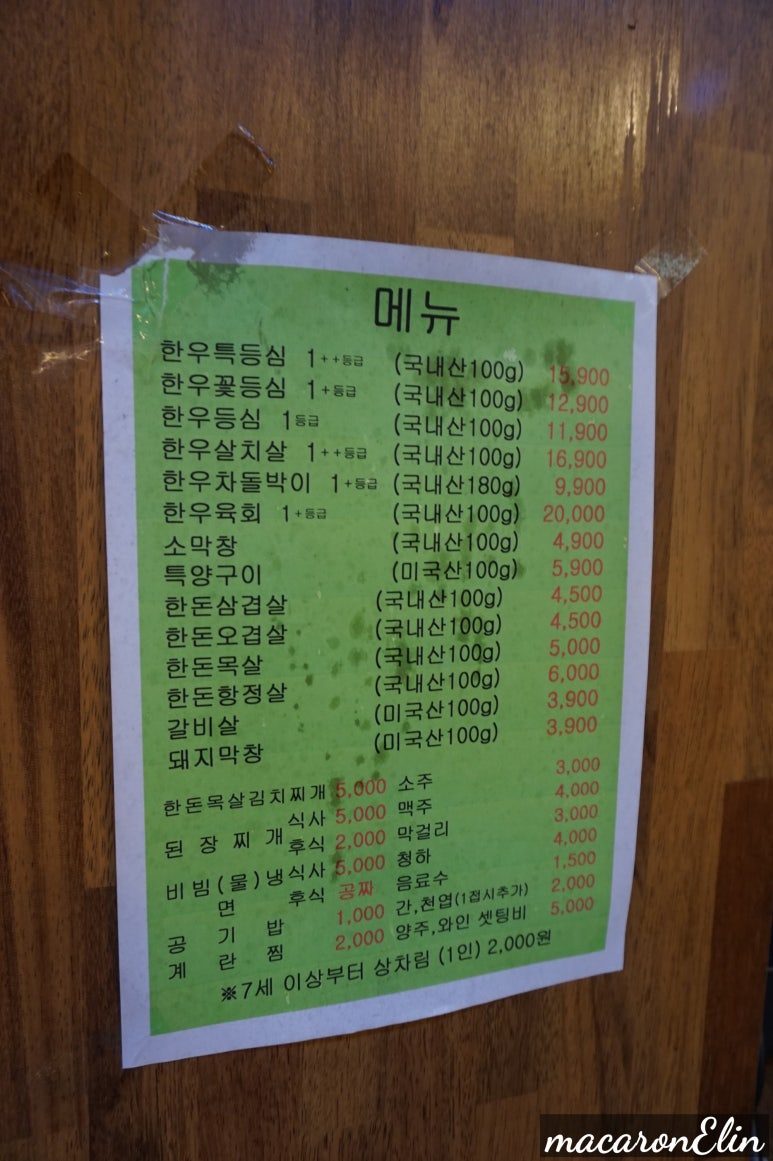 메뉴
한우특등심 1++등급 (국내산100g) 15,900
한우꽃등심 1+등급 (국내산100g) 12,900
한우등심 1등급 (국내산100g) 11,900
한우살치살 1++등급 (국내산100g) 16,900
한우차돌박이 1+등급 (국내산180g) 9,900
한우육회 1+등급 (국내산100g) 20,000
소막창 (국내산100g) 4,900
특양구이 (미국산100g) 5,900
한돈삼겹살 (국내산100g) 4,500
한돈오겹살 (국내산100g) 4,500
한돈목살 (국내산100g) 5,000
한돈항정살 (국내산100g) 6,000
갈비살 (미국산100g) 3,900
돼지막창 (미국산100g) 3,900
한돈목살김치찌개 5,000 소주 3,000
된장찌개 식사 5,000 맥주 4,000
후식 2,000 막걸리 3,000
비빔(물)냉면 식사 5,000 청하 4,000
후식 공짜 음료수 1,500
공기밥 1,000 간,천엽(1접시추가) 2,000
계란찜 2,000 양주,와인 셋팅비 5,000
※7세 이상부터 상차림 (1인) 2,000원
macaronElin